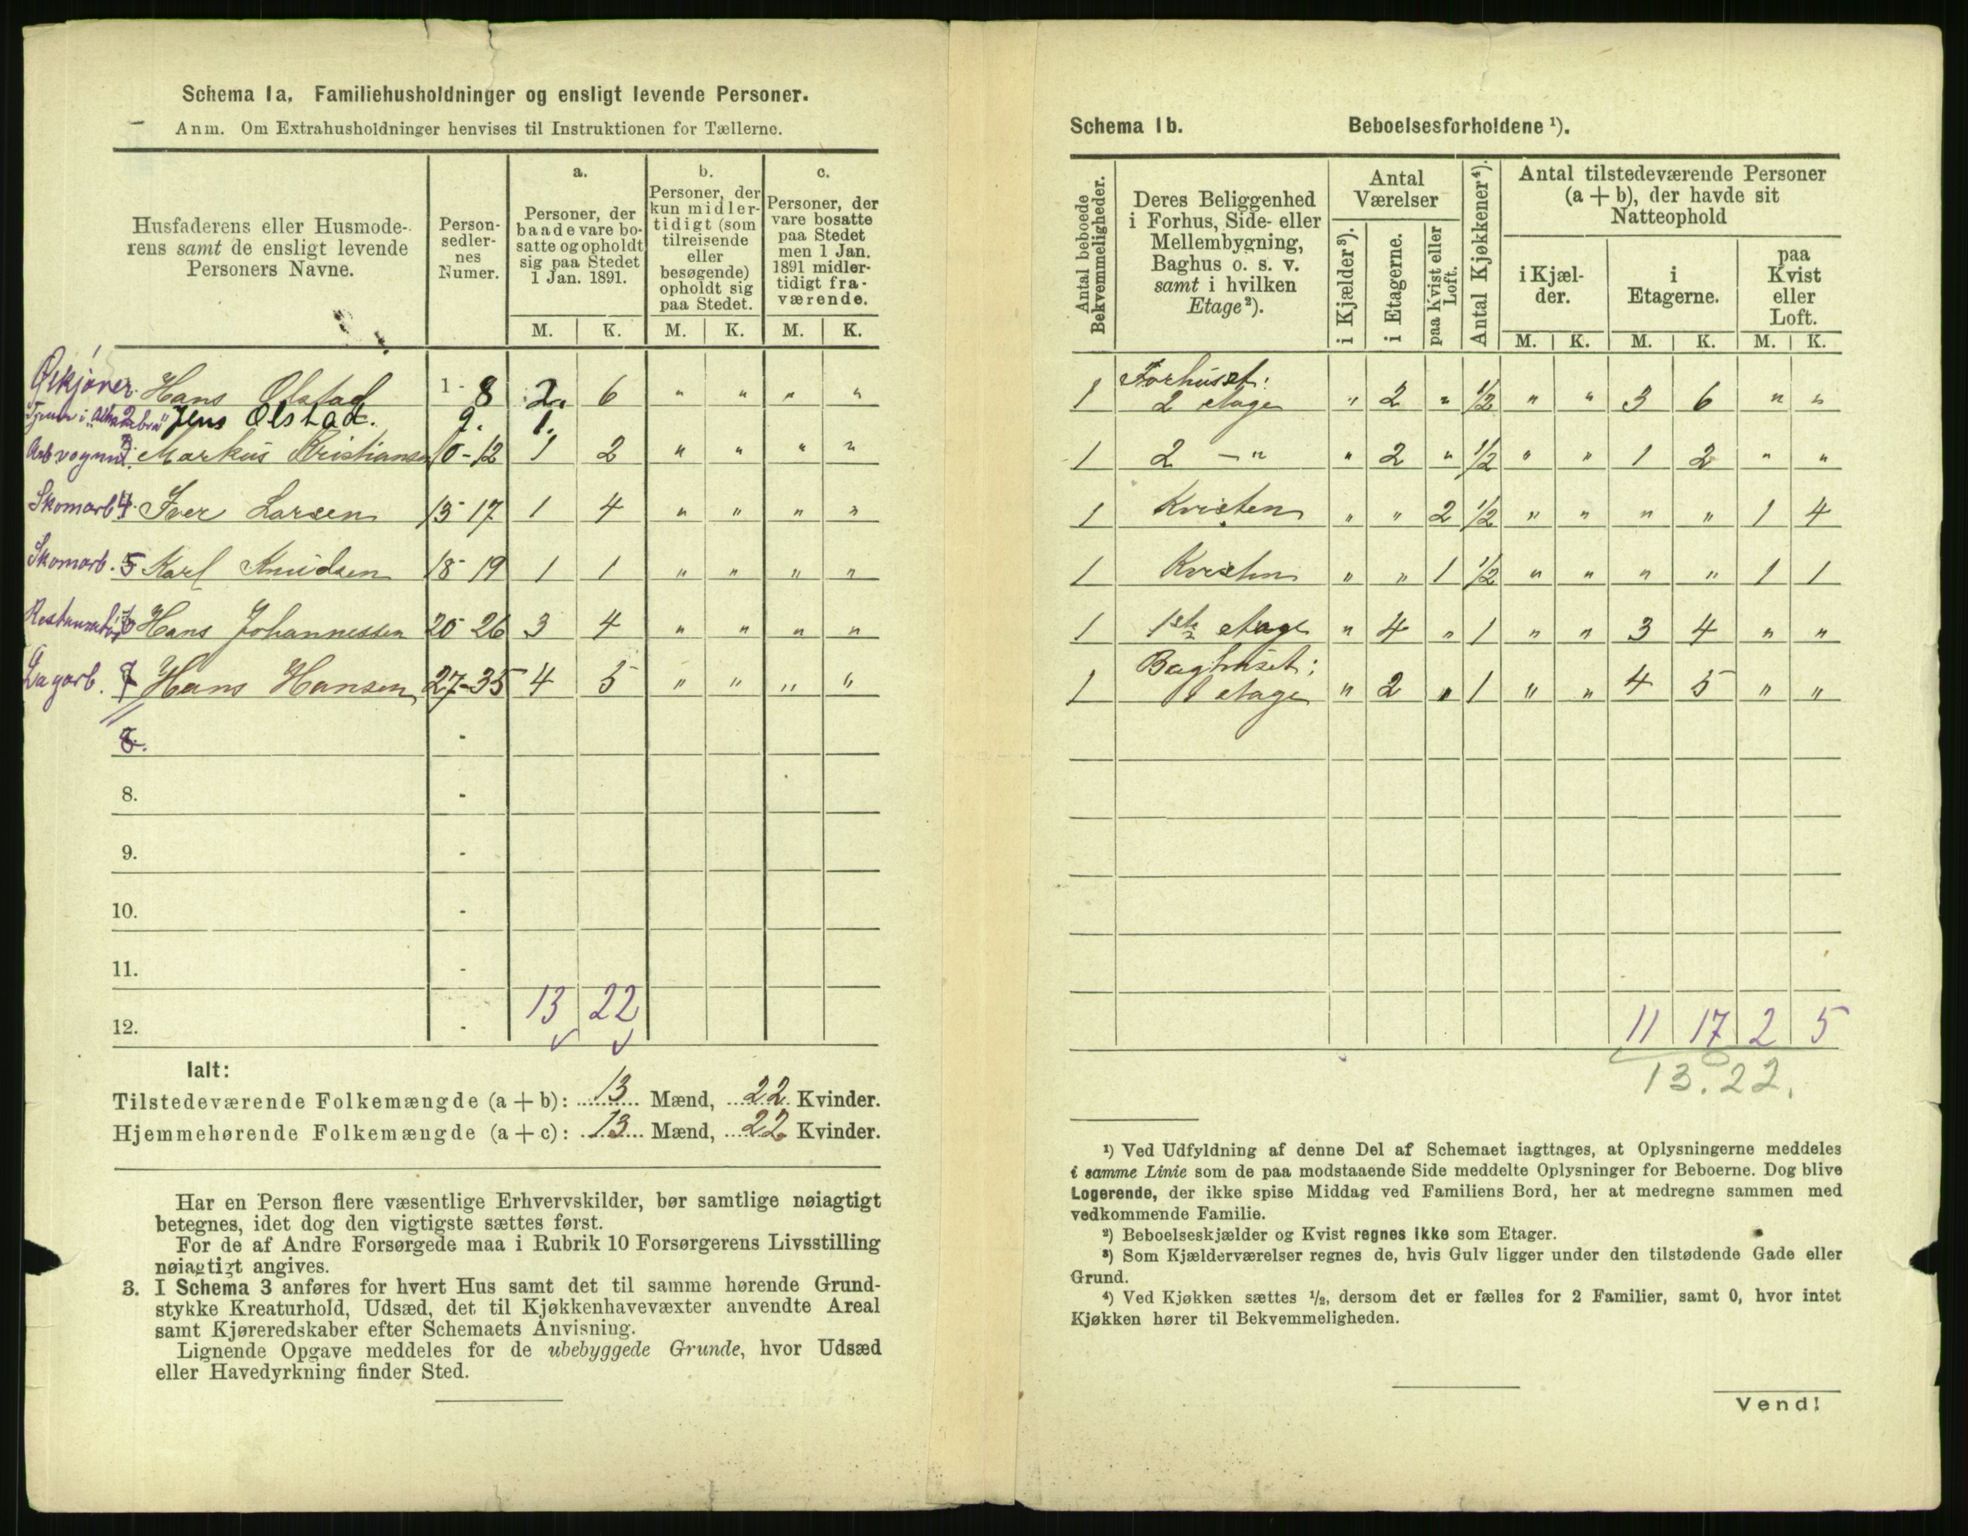 Schema 1a. Familiehusholdninger og ensligt levende Personer.
Anm. Om Extrahusholdninger henvises til Instruktionen for Tællerne.
Husfaderens eller Husmoderens samt de ensligt levende Personers Navne.
Personsedlernes Numer.
a. Personer, der baade vare bosatte og opholdt sig paa Stedet 1 Jan. 1891.
b. Personer, der kun midlertidigt (som tilreisende eller besøgende) opholdt sig paa Stedet.
c. Personer, der vare bosatte paa Stedet men 1 Jan. 1891 midlertidigt fraværende.
M. K. M. K. M. K.
Ølkjører. Hans Olstad 1-8 2. 6 " " " "
Jens Olstad. 9. 1.
Markus Kristiansen 10-12 1 2 " " " "
Skomarb 4 Iver Larsen 13-17 1 4 " " " "
Skomarb. 5 Karl Knudsen 18-19 1 1 " " " "
Hans Johannessen 20-26 3 4 " " " "
Dagarb. 7 Hans Hansen 27-35 4 5 " " " "
8. -
8. -
9. -
10. -
11. -
12. - 13 22
Ialt:
Tilstedeværende Folkemængde (a + b): 13 Mænd, 22 Kvinder.
Hjemmehørende Folkemængde (a + c): 13 Mænd, 22 Kvinder.
Har en Person flere væsentlige Erhvervskilder, bør samtlige nøiagtigt
betegnes, idet dog den vigtigste sættes først.
For de af Andre Forsørgede maa i Rubrik 10 Forsørgerens Livsstilling
nøiagtigt angives.
3. I Schema 3 anføres for hvert Hus samt det til samme hørende Grund-
stykke Kreaturhold, Udsæd, det til Kjøkkenhavevæxter anvendte Areal
samt Kjøreredskaber efter Schemaets Anvisning.
Lignende Opgave meddeles for de ubebyggede Grunde, hvor Udsæd
eller Havedyrkning finder Sted.
Schema 1b. Beboelsesforholdene ¹).
Antal beboede Bekvemmeligheder.
Deres Beliggenhed i Forhus, Side- eller Mellembygning, Baghus o. s. v. samt i hvilken Etage²).
Antal Værelser
i Kjælder³).
i Etagerne.
paa Kvist eller Loft.
Antal Kjøkkener⁴).
Antal tilstedeværende Personer (a + b), der havde sit Natteophold
i Kjælder.
i Etagerne.
paa Kvist eller Loft.
M. K. M. K. M. K.
1 Forhuset: 2 etage " 2 " 1/2 " " 3 6 " "
1 2 — " " 2 " 1/2 " " 1 2 " "
1 Kvisten " " 2 1/2 " " " " 1 4
1 Kvisten " " 1 1/2 " " " " 1 1
1 1ste etage " 4 " 1 " " 3 4 " "
1 Baghuset: 1 etage " 2 " 1 " " 4 5 " "
11 17 2 5
13. 22.
¹) Ved Udfyldning af denne Del af Schemaet iagttages, at Oplysningerne meddeles
i samme Linie som de paa modstaaende Side meddelte Oplysninger for Beboerne. Dog blive
Logerende, der ikke spise Middag ved Familiens Bord, her at medregne sammen med
vedkommende Familie.
²) Beboelseskjælder og Kvist regnes ikke som Etager.
³) Som Kjælderværelser regnes de, hvis Gulv ligger under den tilstødende Gade eller
Grund.
⁴) Ved Kjøkken sættes ½, dersom det er fælles for 2 Familier, samt 0, hvor intet
Kjøkken hører til Bekvemmeligheden.
Vend!